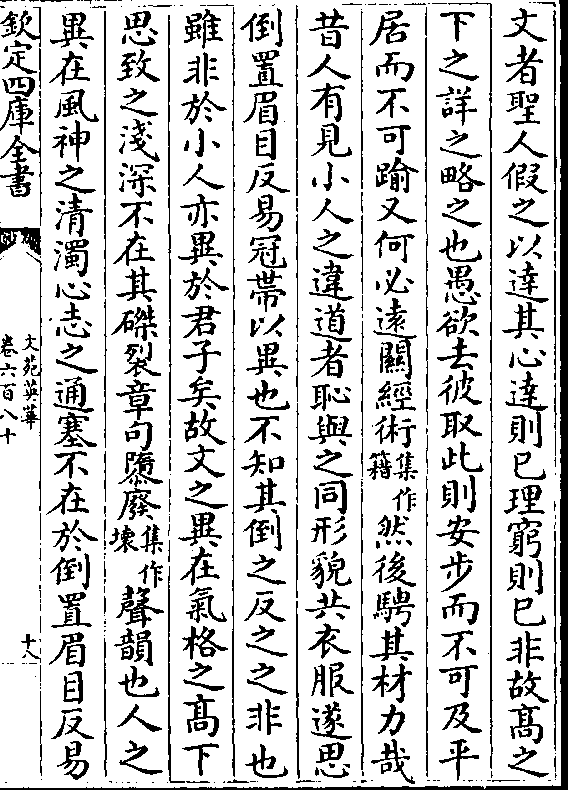 文者聖人假之以達其心達則已理窮則已非故髙之
下之詳之略之也愚欲去彼取此則安步而不可及平
居而不可踰又何必遠關經術集作籍然後騁其材力哉
昔人有見小人之違道者恥與之同形貌共衣服遂思
倒置眉目反易冠帶以異也不知其倒之反之之非也
雖非於小人亦異於君子矣故文之異在氣格之髙下
思致之淺深不在其磔裂章句隳廢集作壊聲韻也人之
異在風神之清濁心志之通塞不在於倒置眉目反易
欽定四庫全書
文苑英華
卷六百八十
十八